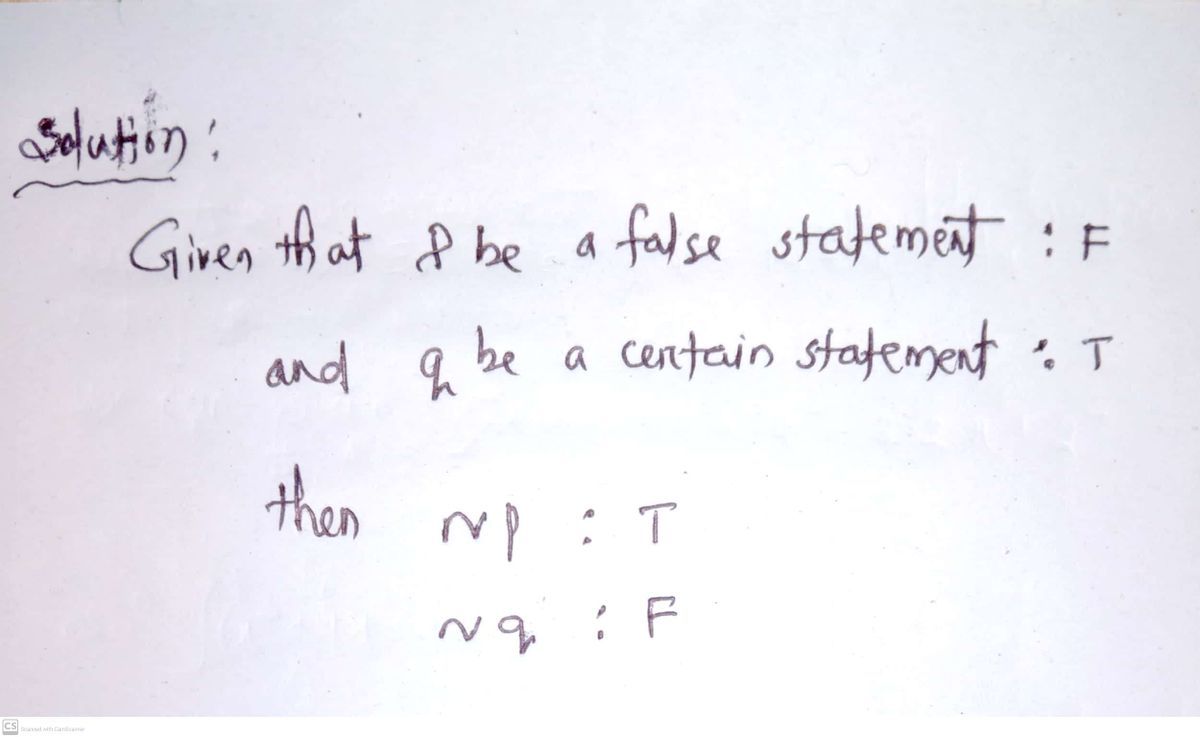 Solution :
Given that p be a false statement : F
and q be a certain statement : T
then ~p : T
~q : F
CS Scanned with CamScanner